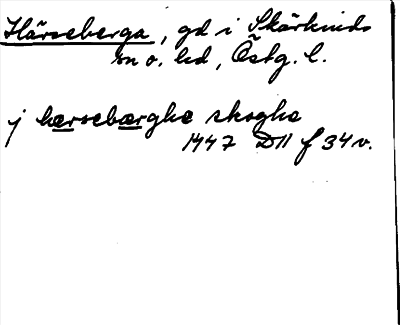 Härseberga, gd i Skärkinds
sn o. hd, Östg. l.
j hærsebærghe skoghe
1447 D11 f 34 v.